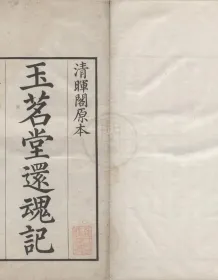 清暉閣原本
玉茗堂還魂記